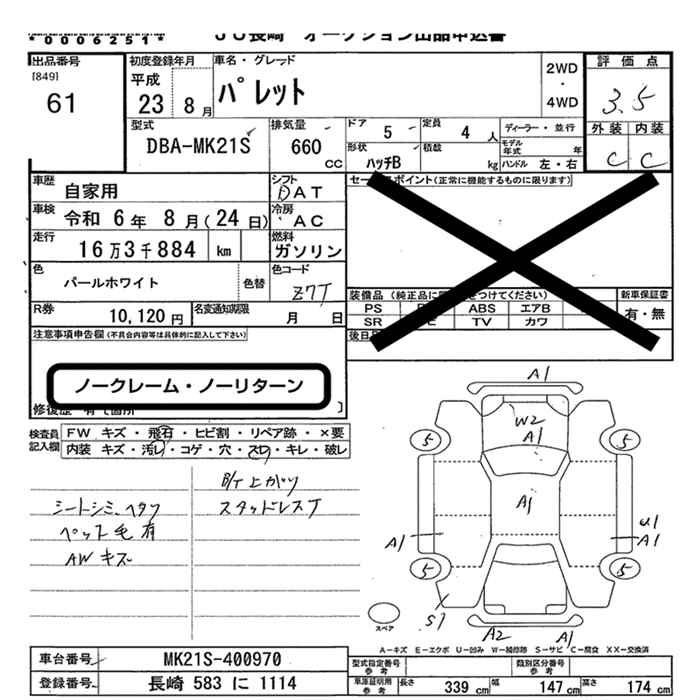 *0006251*
JU長崎 オークション出品申込書
出品番号
[849]
61
初度登録年月
平成
23 8月
車名・グレード
パレット
2WD
・
4WD
評価点
3.5
外装 内装
C C
型式
DBA-MK21S
排気量
660
CC
ドア 5
定員 4人
ディーラー・並行
形状 ハッチB
積載 kg
モデル年式 年
ハンドル 左・右
車歴 自家用
シフト DAT
セールスポイント(正常に機能するものに限ります)
車検 令和 6年 8月(24日)
冷房 AC
走行 16万3千884 km
燃料 ガソリン
色 パールホワイト
色替
色コード Z7T
R券 10,120円
名変通知期限 月 日
装備品
新車保証書
PS ABS エアB
SR TV カワ
有・無
注意事項申告欄(不具合内容等は具体的に記入して下さい)
ノークレーム・ノーリターン
検査員記入欄
FW キズ・飛石・ヒビ割・リペア跡・×要
内装 キズ・汚レ・コゲ・穴・スレ・キレ・破レ
シートシミ、ヘタリ
ペット毛有
AWキズ
B/T上がり
スタッドレスT
A1
W2
A1
5 5
A1
A1
U1
A1
5 5
S1
スペア
A2 A1
A-キズ E-エクボ U-凹み W-補修跡 S-サビ C-腐食 XX-交換済
車台番号 MK21S-400970
型式指定番号 参考
類別区分番号 参考
登録番号 長崎 583 に 1114
車庫証明用 参考
長さ 339 cm
幅 147 cm
高さ 174 cm